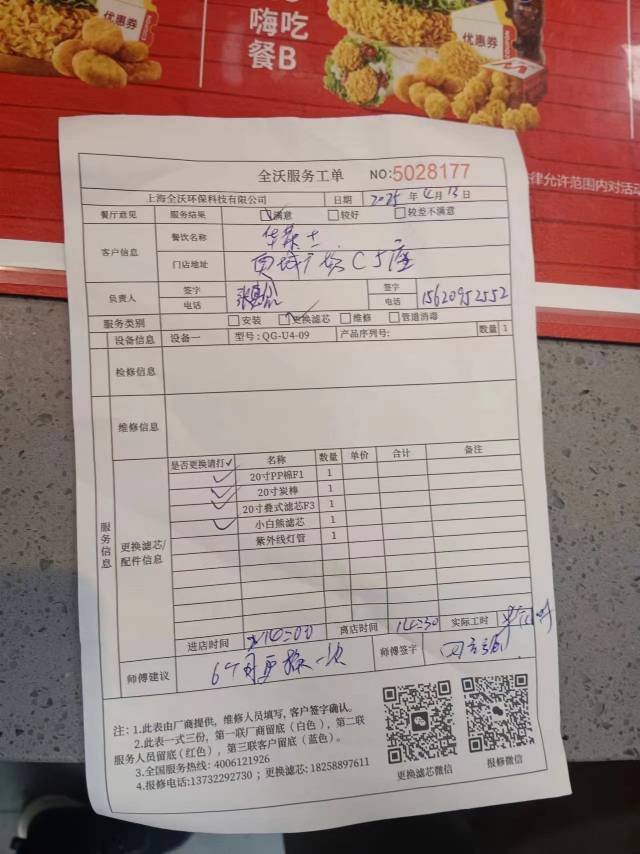 嗨吃
餐B
优惠券
优惠券
律允许范围内对活动
全沃服务工单 NO:5028177
上海全沃环保科技有限公司 日期 2025年4月13日
餐厅意见 服务结果 ☑满意 □较好 □较差不满意
客户信息 餐饮名称 华莱士
门店地址 广场C5座
负责人 签字 签字
电话 电话 15620952552
服务类别 □安装 ☑更换滤芯 □维修 □管道消毒
设备信息 设备一 型号:QG-U4-09 产品序列号: 数量 1
检修信息
维修信息
服务信息
更换滤芯/配件信息
是否更换请打✓ 名称 数量 单价 合计 备注
✓ 20寸PP棉F1 1
✓ 20寸炭棒 1
✓ 20寸叠式滤芯F3 1
✓ 小白熊滤芯 1
紫外线灯管 1
进店时间 14:00 离店时间 14:30 实际工时
师傅建议 6个月更换一次 师傅签字
注:1.此表由厂商提供,维修人员填写,客户签字确认。
2.此表一式三份,第一联厂商留底(白色),第二联
服务人员留底(红色),第三联客户留底(蓝色)。
3.全国服务热线:4006121926
4.报修电话:13732292730;更换滤芯:18258897611
更换滤芯微信
报修微信